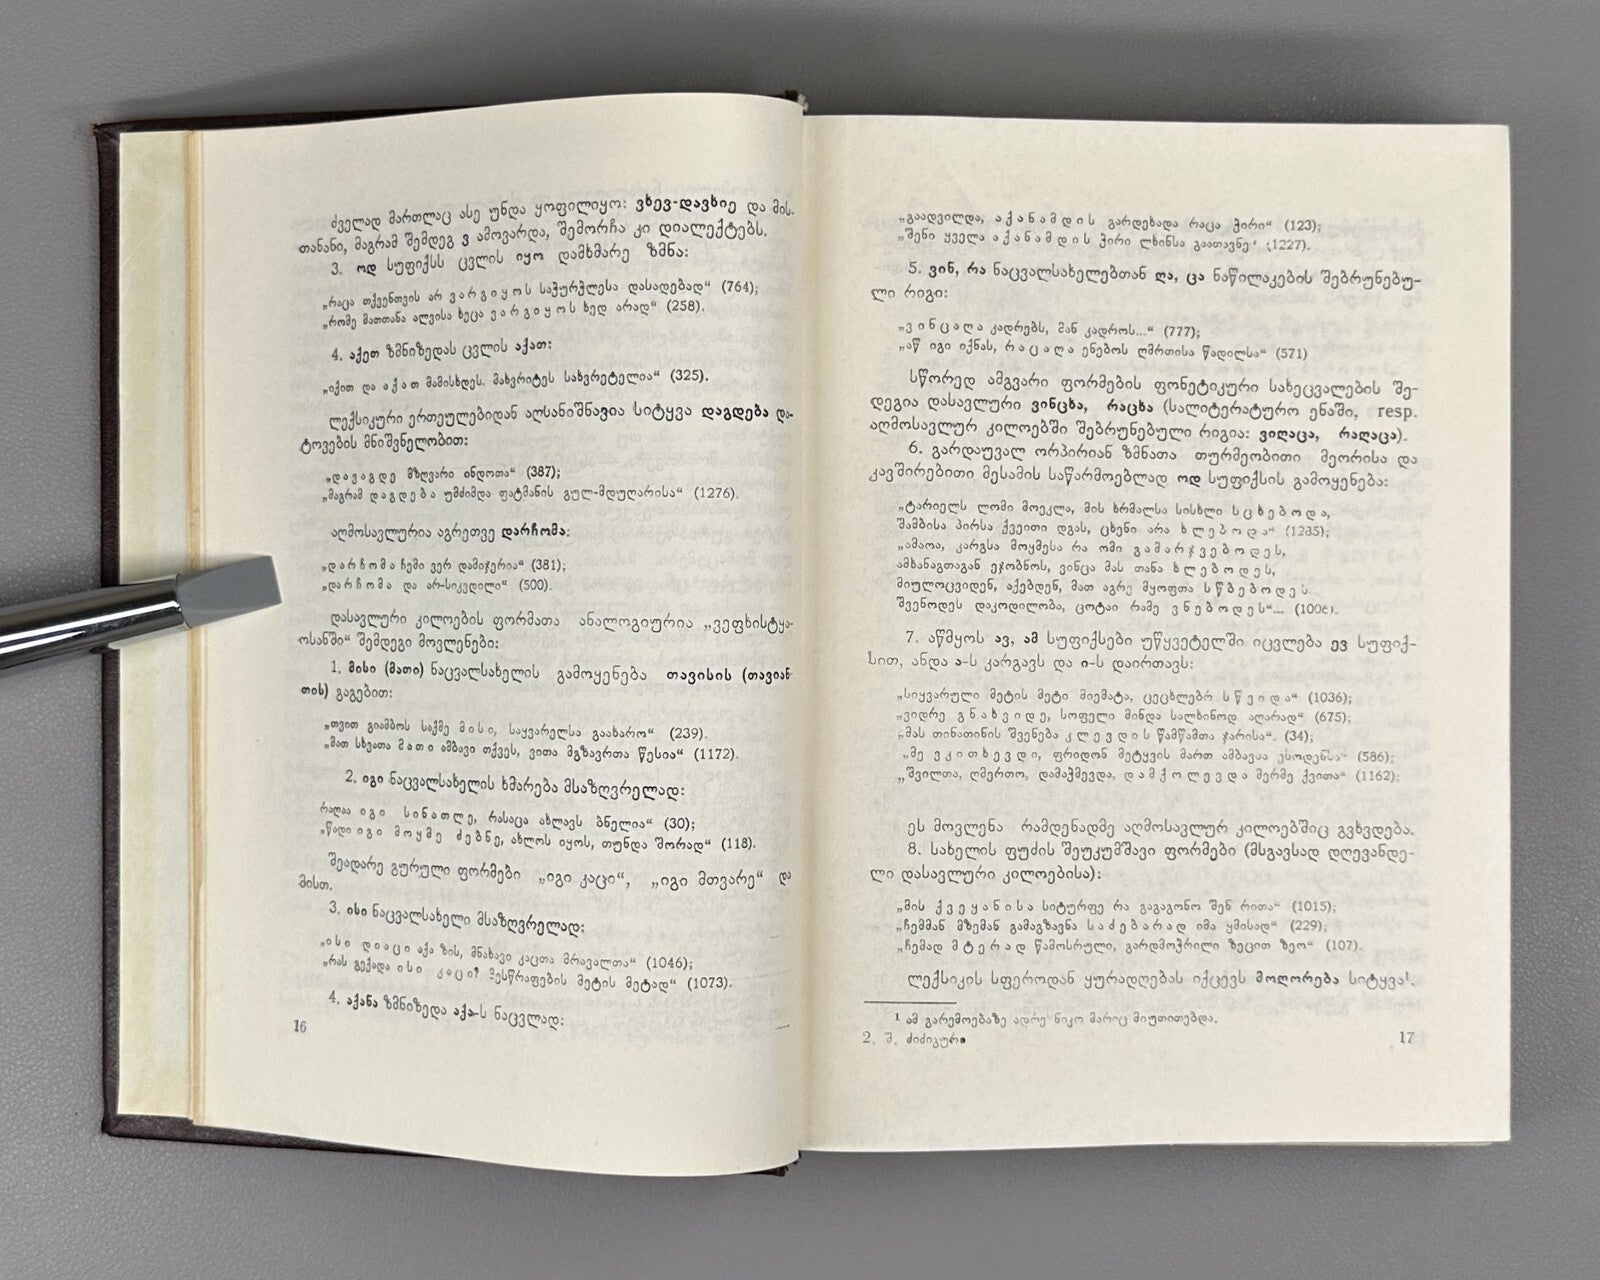 ძველად მართლაც ასე უნდა ყოფილიყო: ვხევ-დავხიე და მის-
თანანი, მაგრამ შემდეგ ვ ამოვარდა, შემორჩა კი დიალექტებს.
3. ოდ სუფიქსს ცვლის იყო დამხმარე ზმნა:
„რაცა თქვენთვის არ ვარგიყოს საჭურჭლესა დასადებად“ (764);
„რომე მათთანა ალვისა ხეცა ვარგიყოს ხედ არად“ (258).
4. აქეთ ზმნიზედას ცვლის აქათ:
„იქით და აქათ მამისხდეს. მახვრიტეს სახვრეტელია“ (325).
ლექსიკური ერთეულებიდან აღსანიშნავია სიტყვა დაგდება და-
ტოვების მნიშვნელობით:
„დავაგდე მზღვარი ინდოთა“ (387);
„მაგრამ დაგდება უმძიმდა ფატმანის გულ-მდუღარისა“ (1276).
აღმოსავლურია აგრეთვე დარჩომა:
„დარჩომა ჩემი ვერ დამიჯერია“ (381);
„დარჩომა და არ-სიკვდილი“ (500).
დასავლური კილოების ფორმათა ანალოგიურია „ვეფხისტყა-
ოსანში“ შემდეგი მოვლენები:
1. მისი (მათი) ნაცვალსახელის გამოყენება თავისის (თავიან-
თის) გაგებით:
„თვით გიამბოს საქმე მისი, საყვარელსა გაახარო“ (239).
„მათ სხვათა მათი ამბავი თქვეს, ვითა მგზავრთა წესია“ (1172).
2. იგი ნაცვალსახელის ხმარება მსაზღვრელად:
რაღაა იგი სინათლე, რასაცა ახლავს ბნელია“ (30);
„წადი იგი მოყმე ძებნე, ახლოს იყოს, თუნდა შორად“ (118).
შეადარე გურული ფორმები „იგი კაცი“, „იგი მთვარე“ და
მისთ.
3. ისი ნაცვალსახელი მსაზღვრელად:
„ისი დიაცი აქა ზის, მნახავი კაცთა მრავალთა“ (1046);
„რას გექადა ისი კაცი? ესწრაფების მეტის მეტად“ (1073).
4. აქანა ზმნიზედა აქა-ს ნაცვლად:
16
„გაადვილდა, აქანამდის გარდეხადა რაცა ჭირი“ (123);
„შენი ყველა აქანამდის ჭირი ლხინსა გაათავნე“ (1227).
5. ვინ, რა ნაცვალსახელებთან ღა, ცა ნაწილაკების შებრუნებუ-
ლი რიგი:
„ვინცაღა კადრებს, მან კადროს...“ (777);
„აწ იგი იქნას, რაცაღა ენებოს ღმრთისა წადილსა“ (571)
სწორედ ამგვარი ფორმების ფონეტიკური სახეცვალების შე-
დეგია დასავლური ვინცხა, რაცხა (სალიტერატურო ენაში, resp.
აღმოსავლურ კილოებში შებრუნებული რიგია: ვიღაცა, რაღაცა).
6. გარდაუვალ ორპირიან ზმნათა თურმეობითი მეორისა და
კავშირებითი მესამის საწარმოებლად ოდ სუფიქსის გამოყენება:
„ტარიელს ლომი მოეკლა, მის ხრმალსა სისხლი სცხებოდა,
შამბისა პირსა ქვეითი დგას, ცხენი არა ხლებოდა“ (1235);
„ამაოა, კარგსა მოყმესა რა ომი გამარჯვებოდეს,
ამხანაგთაგან ეჯობნოს, ვინცა მას თანა ხლებოდეს,
მიულოცვიდენ, აქებდენ, მათ აგრე მყოფთა სწბებოდეს
შვენოდეს დაკოდილობა, ცოტაი რამე ვნებოდეს“... (1006).
7. აწმყოს ავ, ამ სუფიქსები უწყვეტელში იცვლება ევ სუფიქ-
სით, ანდა ა-ს კარგავს და ი-ს დაირთავს:
„სიყვარული მეტის მეტი მიემატა, ცეცხლებრ სწვიდა“ (1036);
„ვიდრე გნახვიდე, სოფელი მინდა სალხინოდ აღარად“ (675);
„მას თინათინის შვენება კლევდის წამწამთა ჯარისა“. (34);
„მე ვკითხევდი, ფრიდონ მეტყვის მართ ამბავსა ესოდენსა“ (586);
„შვილთა, ღმერთო, დამაჭმევდა, დამქოლევდა მერმე ქვითა“ (1162);
ეს მოვლენა რამდენადმე აღმოსავლურ კილოებშიც გვხვდება.
8. სახელის ფუძის შეუკუმშავი ფორმები (მსგავსად დღევანდე-
ლი დასავლური კილოებისა):
„მის ქვეყანისა სიტურფე რა გაგაგონო შენ რითა“ (1015);
„ჩემმან მზემან გამაგზავნა საძებარად იმა ყმისად“ (229);
„ჩემად მტერად წამოსრული, გარდმოჭრილი ზეცით ზეო“ (107).
ლექსიკის სფეროდან ყურადღებას იქცევს მოღორება სიტყვა¹.
¹ ამ გარემოებაზე ადრე ნიკო მარიც მიუთითებდა.
2. შ. ძიძიგური
17